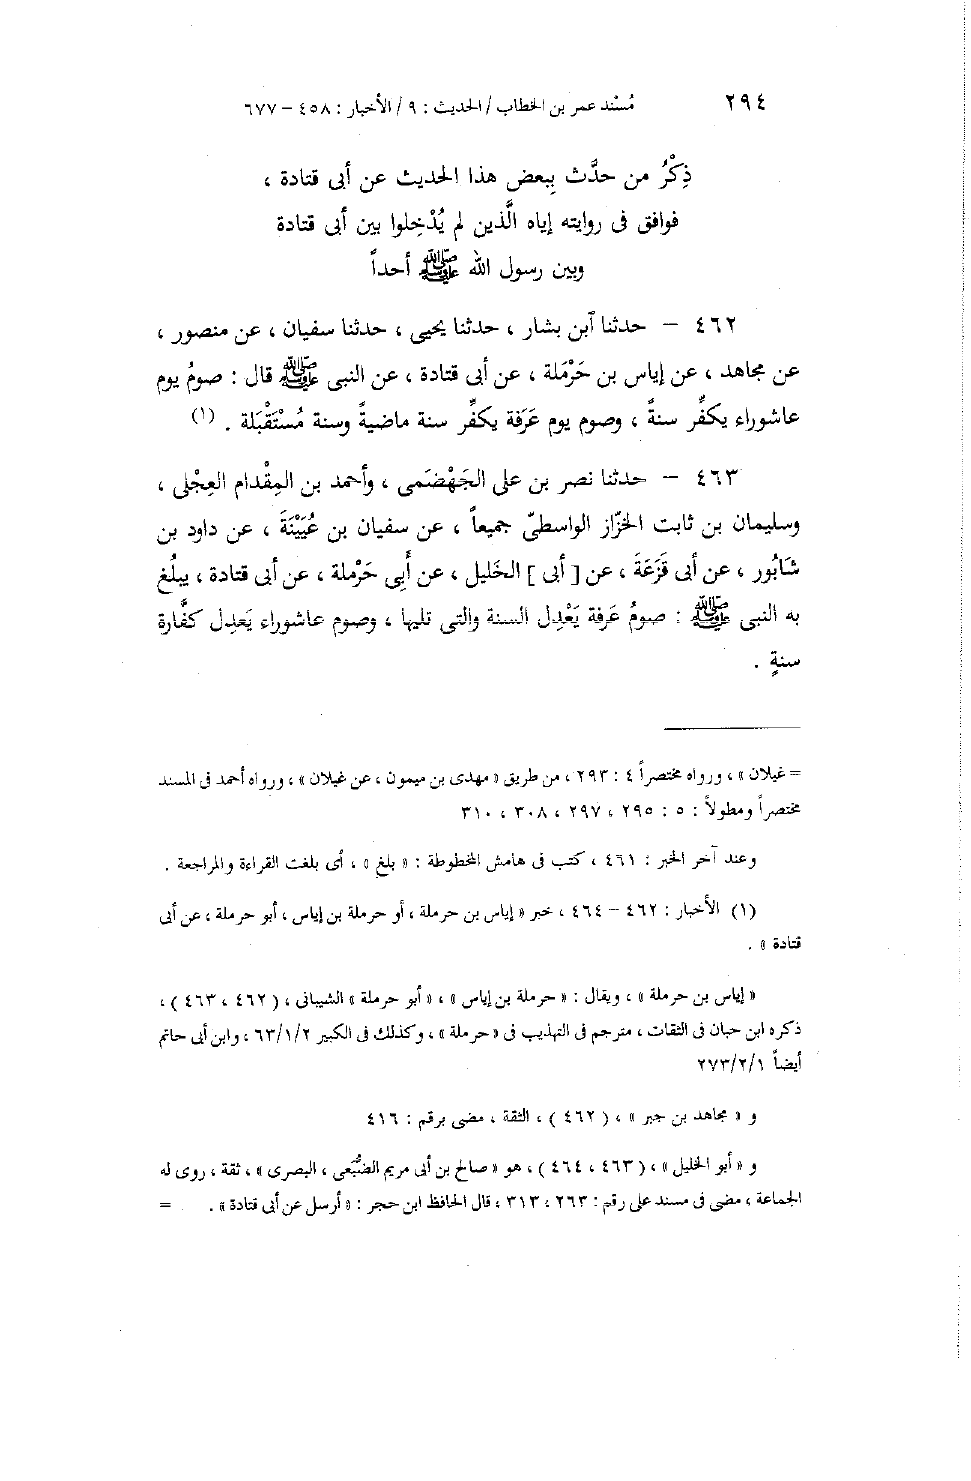 ٢٩٤ مُسْند عمر بن الخطاب / الحديث : ٩ / الأخبار : ٤٥٨ – ٦٧٧
ذِكْرُ من حدَّث بِبعض هذا الحديث عن أبى قتادة ،
فوافق فى روايته إياه الَّذين لم يُدْخِلوا بين أبى قتادة
وبين رسول الله ﷺ أحداً
٤٦٢ – حدثنا ابن بشار ، حدثنا يحيى ، حدثنا سفيان ، عن منصور ،
عن مجاهد ، عن إياس بن حَرْمَلة ، عن أبى قتادة ، عن النبى ﷺ قال : صومُ يوم
عاشوراء يكفِّر سنةً ، وصوم يوم عَرَفة يكفِّر سنة ماضيةً وسنة مُسْتَقْبَلة . (١)
٤٦٣ – حدثنا نصر بن على الجَهْضَمى ، وأحمد بن المِقْدام العِجْلى ،
وسليمان بن ثابت الخزّاز الواسطىّ جميعاً ، عن سفيان بن عُيَيْنَةَ ، عن داود بن
شَابُور ، عن أبى قَزَعَةَ ، عن [ أبى ] الخَليل ، عن أَبِى حَرْملة ، عن أبى قتادة ، يبلُغ
به النبى ﷺ : صومُ عَرفة يَعْدِل السنة والتى تليها ، وصوم عاشوراء يَعدِل كفَّارة
سنةٍ .
= غيلان » ، ورواه مختصراً ٤ : ٢٩٣ ، من طريق « مهدى بن ميمون ، عن غيلان » ، ورواه أحمد فى المسند
مختصراً ومطولاً : ٥ : ٢٩٥ ، ٢٩٧ ، ٣٠٨ ، ٣١٠
وعند آخر الخبر : ٤٦١ ، كتب فى هامش المخطوطة : « بلغ » ، أى بلغت القراءة والمراجعة .
(١) الأخبار : ٤٦٢ – ٤٦٤ ، خبر « إياس بن حرملة ، أو حرملة بن إياس ، أبو حرملة ، عن أبى
قتادة » .
« إياس بن حرملة » ، ويقال : « حرملة بن إياس » ، « أبو حرملة » الشيبانى ، ( ٤٦٢ ، ٤٦٣ ) ،
ذكره ابن حبان فى الثقات ، مترجم فى التهذيب فى « حرملة » ، وكذلك فى الكبير ٦٣/١/٢ ، وابن أبى حاتم
أيضاً ٢٧٣/٢/١
و « مجاهد بن جبر » ، ( ٤٦٢ ) ، الثقة ، مضى برقم : ٤١٦
و « أبو الخليل » ، ( ٤٦٣ ، ٤٦٤ ) ، هو « صالح بن أبى مريم الضُّبَعى ، البصرى » ، ثقة ، روى له
الجماعة ، مضى فى مسند على رقم : ٢٦٣ ، ٣١٣ ، قال الحافظ ابن حجر : « أرسل عن أبى قتادة » . =